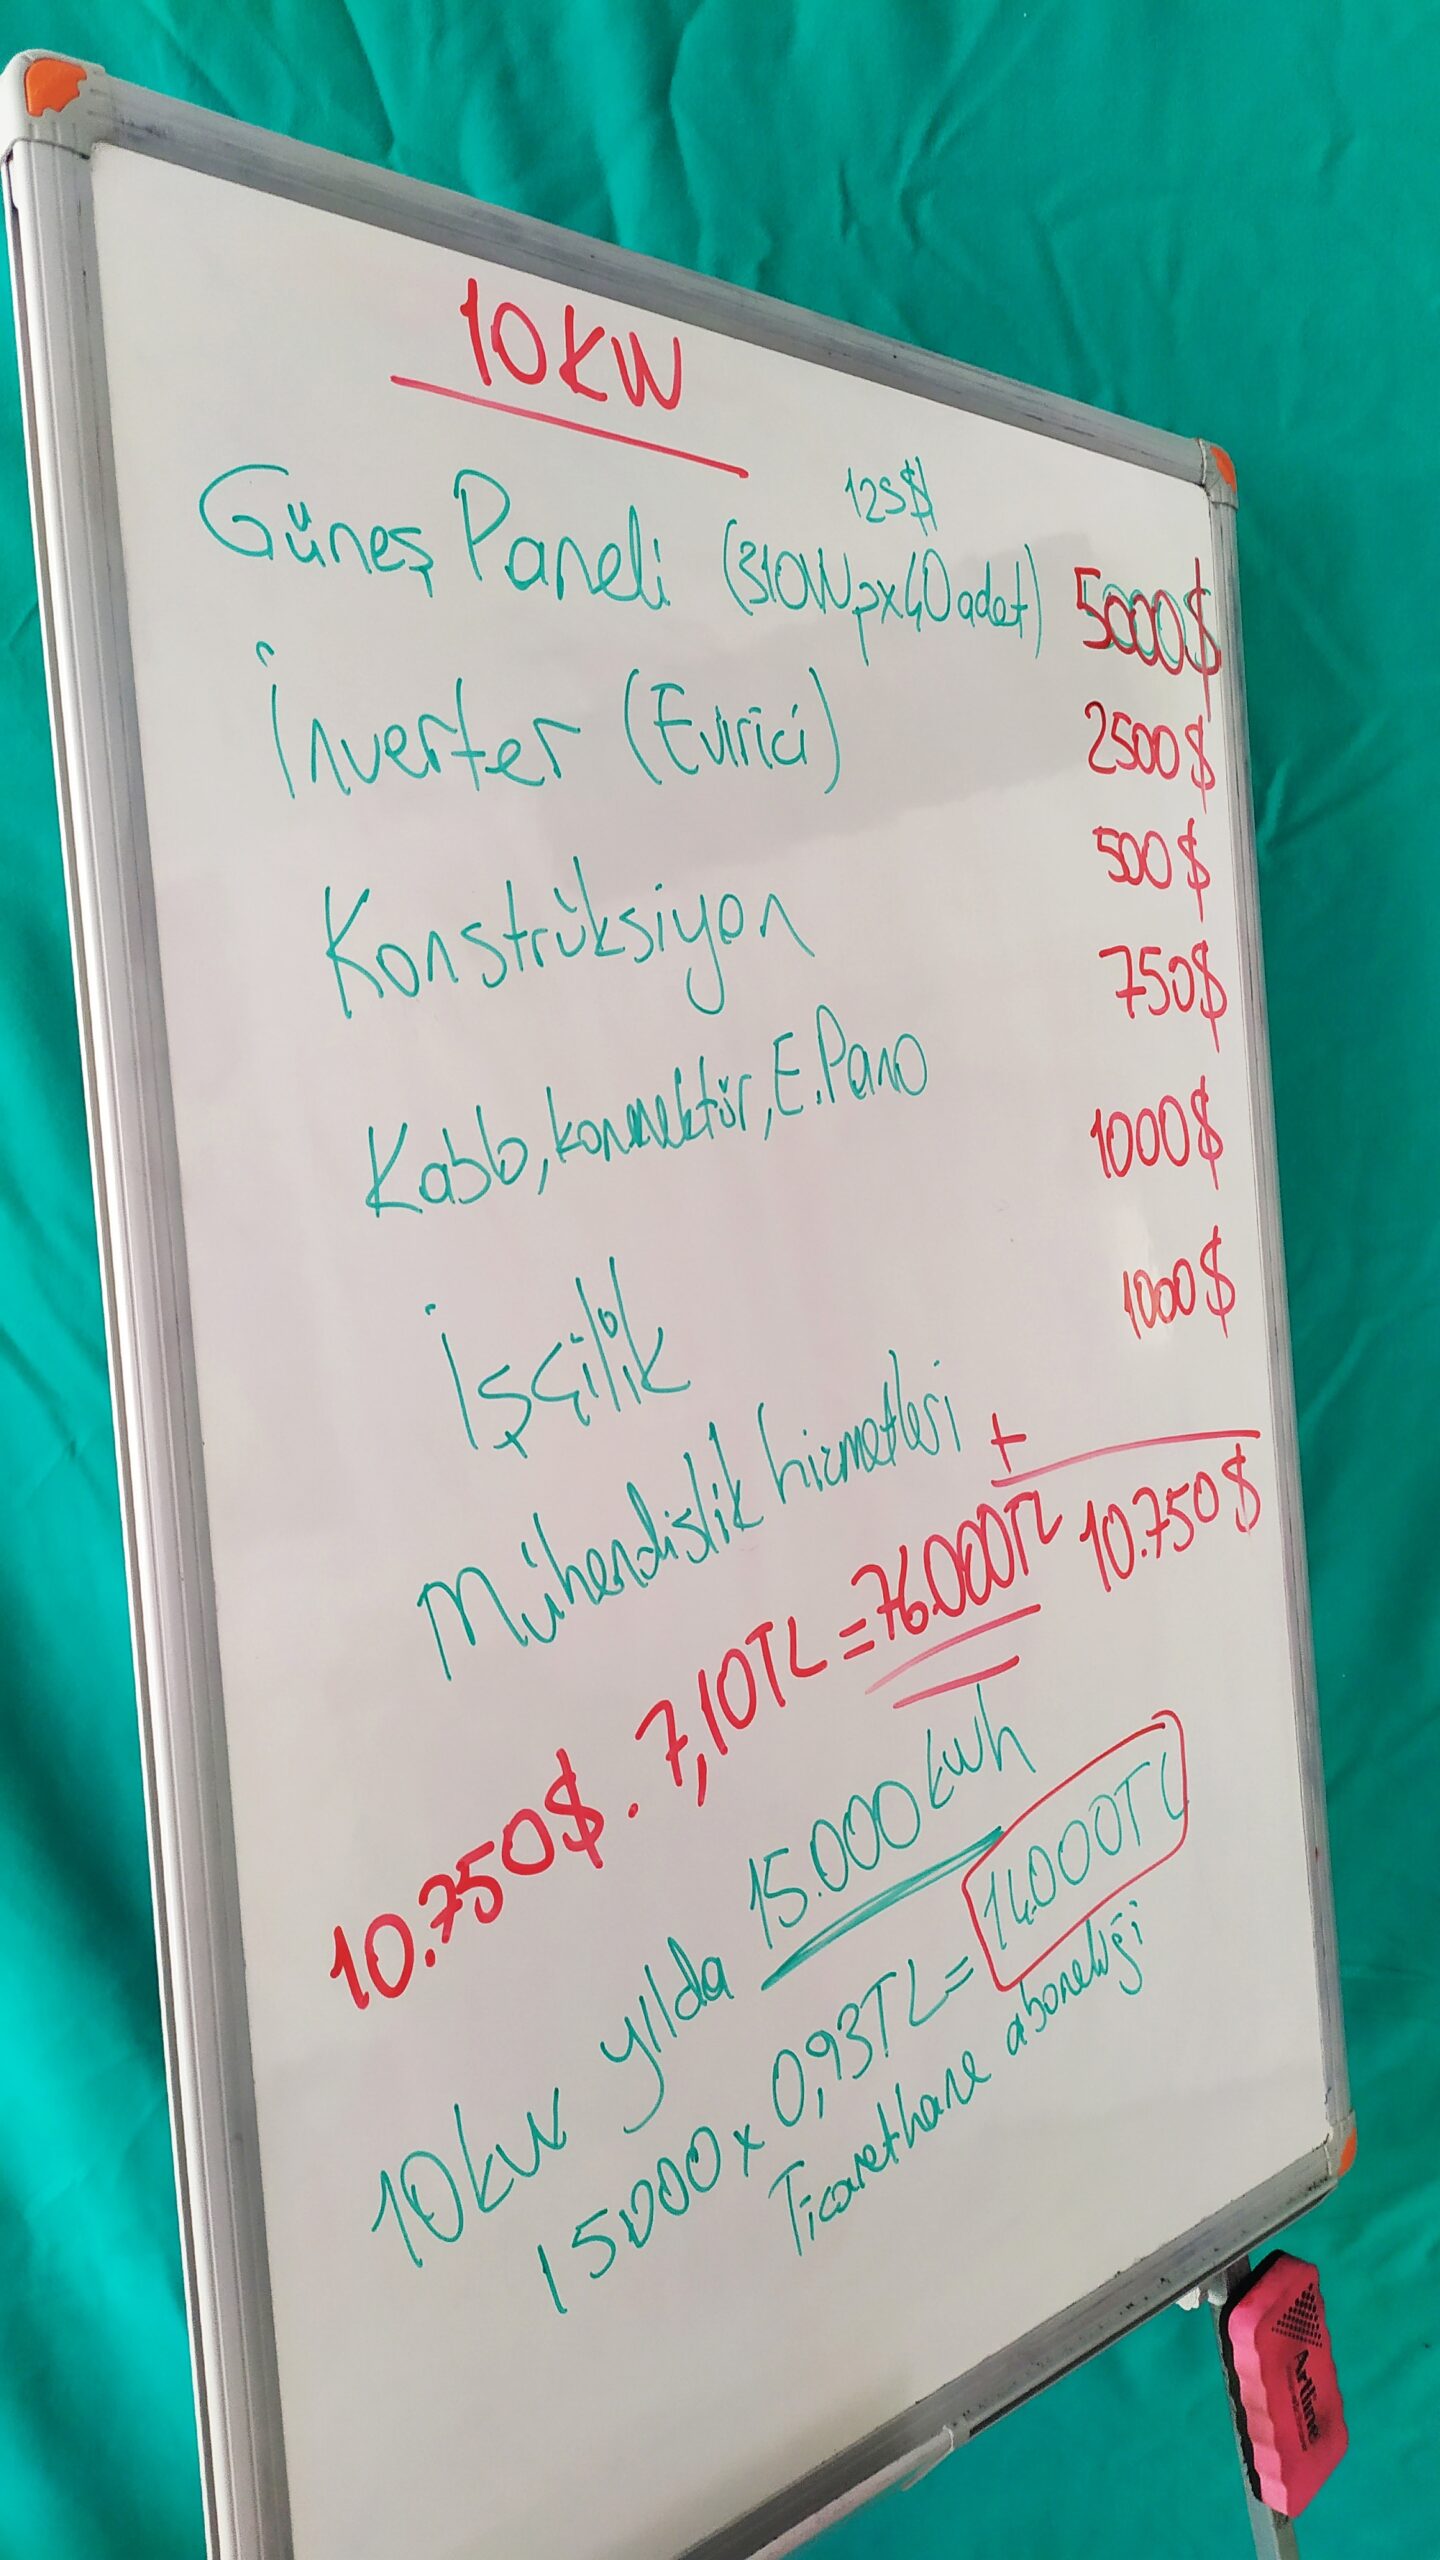 10KW
125$
Güneş Paneli (310Wpx40adet) 5000$
İnverter (Evirici) 2500$
Konstrüksiyon 500$
Kablo, konnektör, E.Pano 750$
İşçilik 1000$
Mühendislik hizmetleri 1000$
+
10.750$
10.750$ . 7,10TL = 76.000TL
10kw yılda 15.000 kwh
15000 x 0,93TL = 14.000TL
Ticarethane aboneliği
Artline